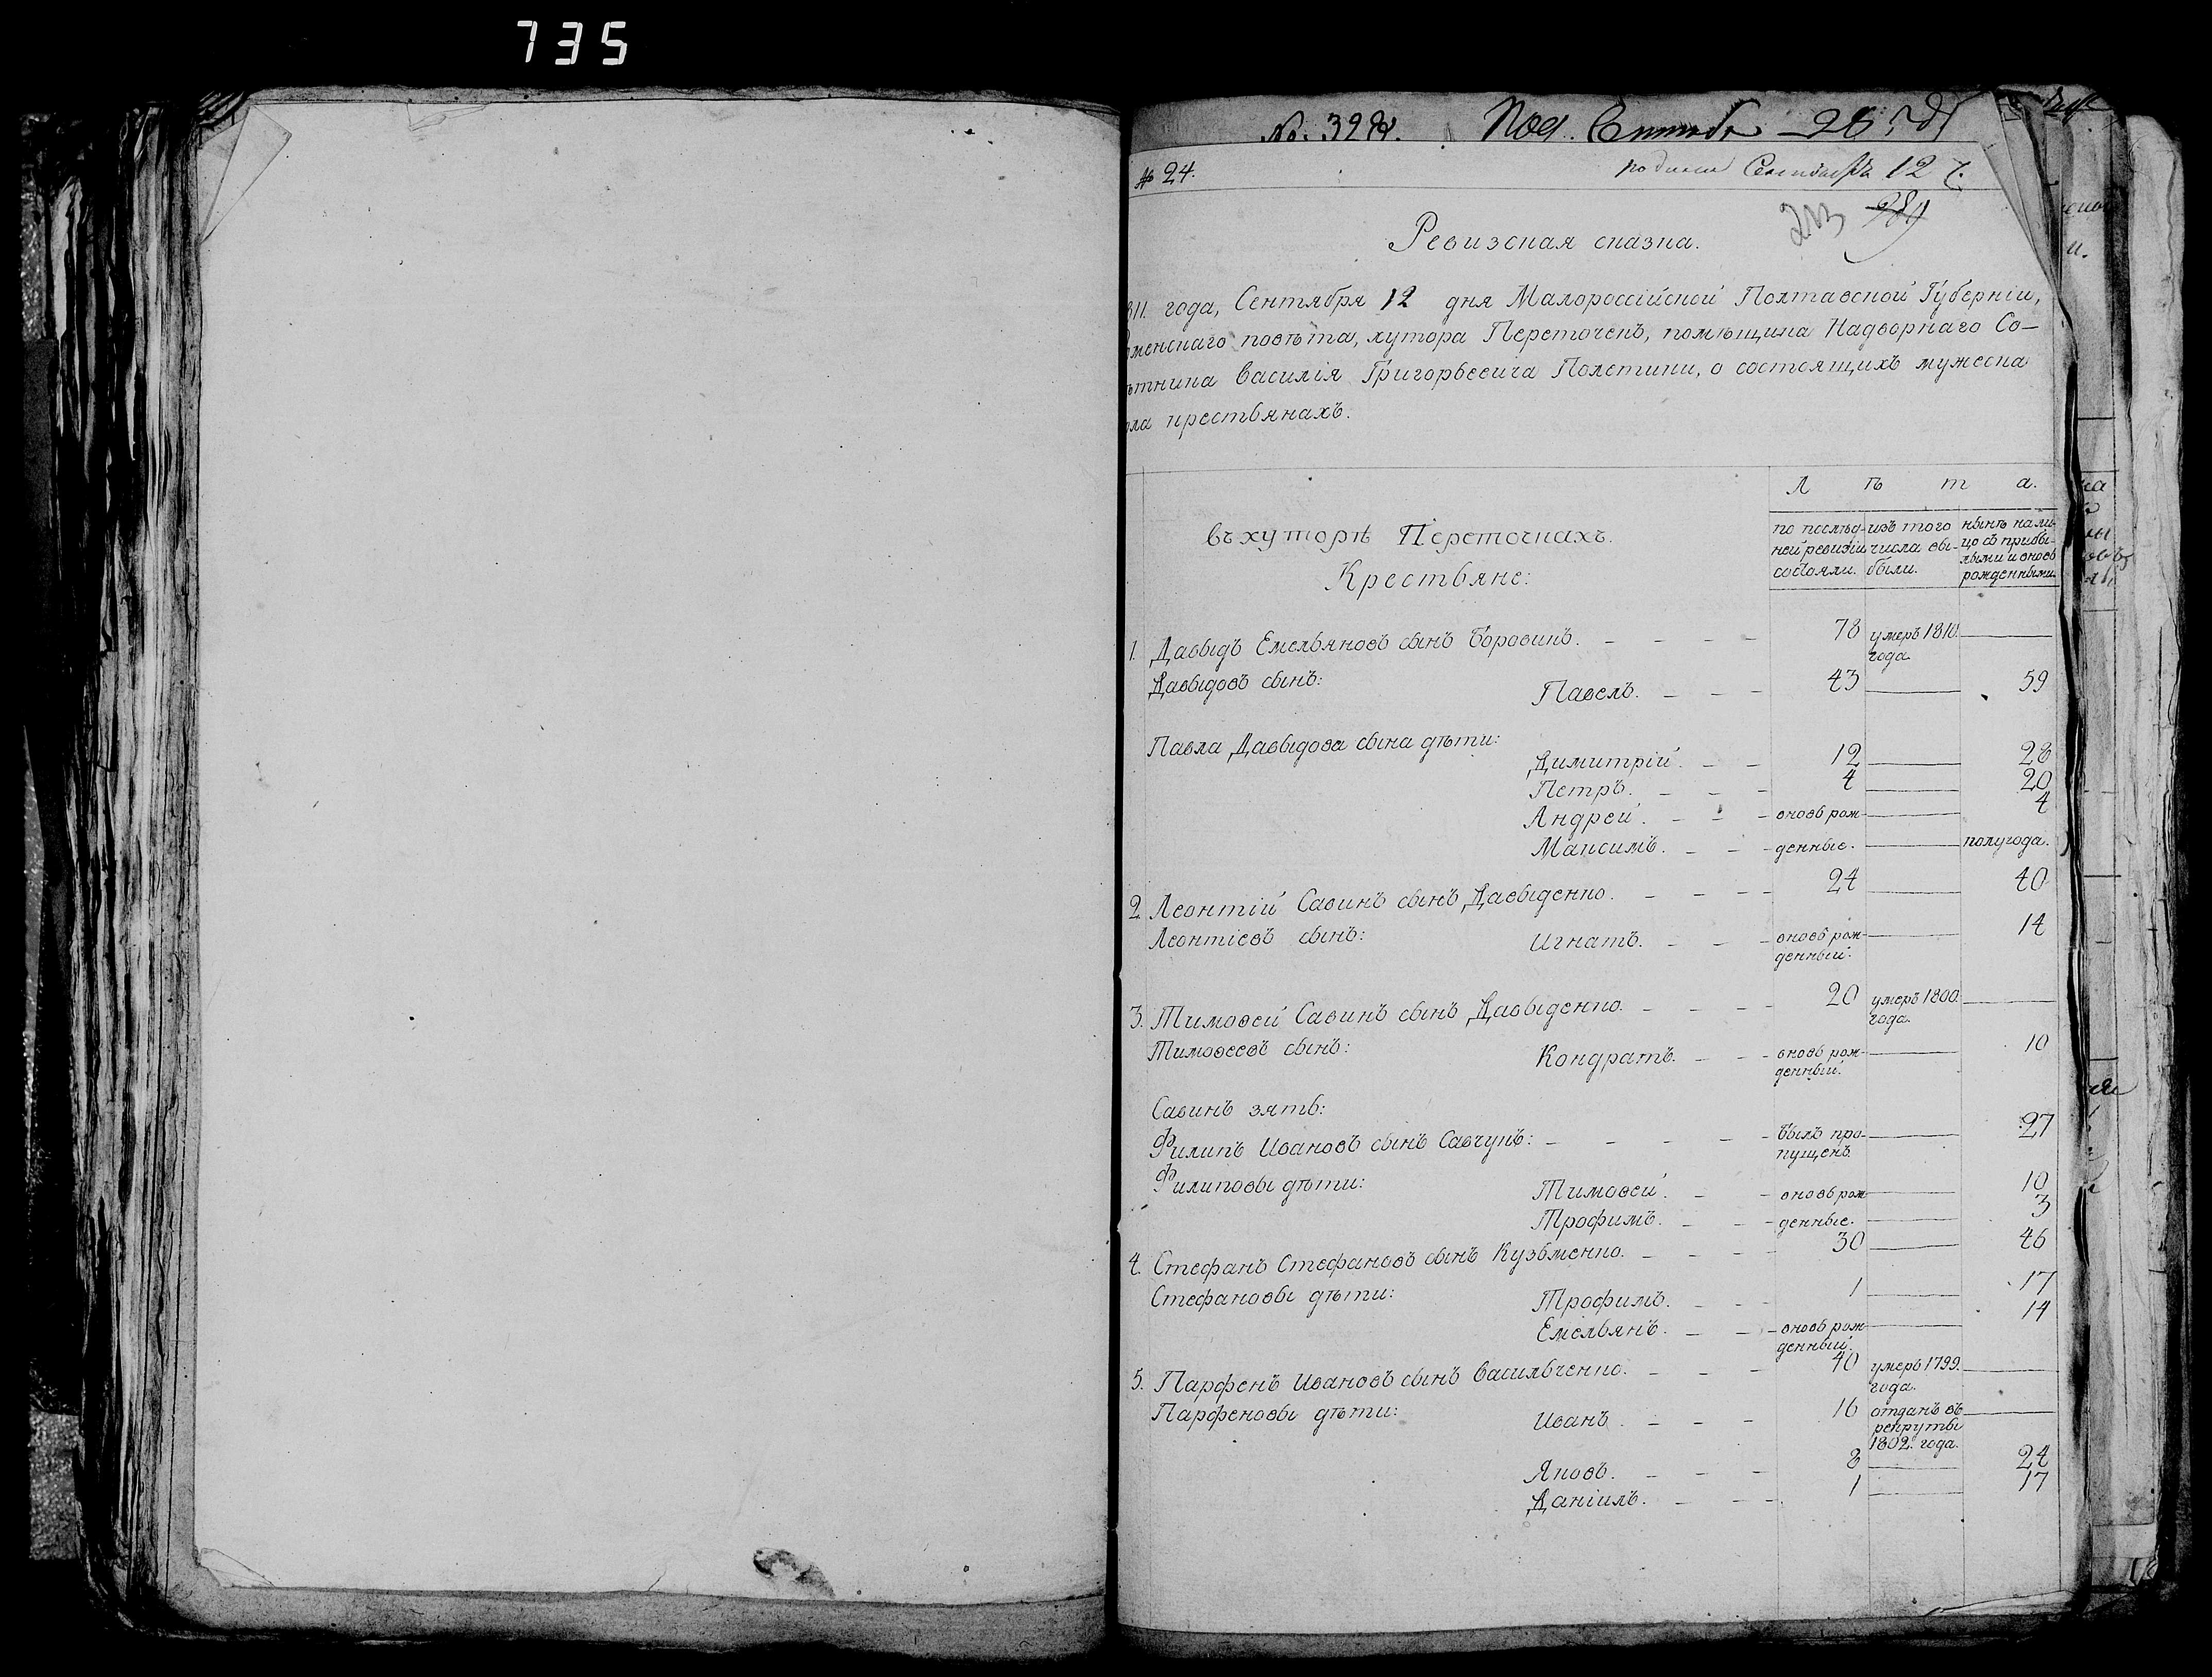 735
№ 24.
Сентября 12
Ревизская сказка.
811. года, Сентября 12 дня Малороссійской Полтавской Губерніи,
оменскаго повѣта, хутора Переточекъ, помѣщика Надворнаго Со-
ѣтника Василія Григорьевича Полетики, о состоящихъ мужеска
ола крестьянахъ.
Л ѣ т а.
Въ хуторѣ Переточкахъ.
Крестьяне:
по послѣд-
ней ревизіи
состояли.
изъ того
числа вы-
были.
нынѣ нали-
цо съ прибы-
лыми и вновь
рожденными.
1. Давыдъ Емельяновъ сынъ Боровикъ. 78 умеръ 1810.
года.
Давыдовъ сынъ: Павелъ. 43 59
Павла Давыдова сына дѣти:
Димитрій. 12 28
Петръ. 4 20
Андрей. вновь рож- 4
Максимъ. денные. полугода.
2. Леонтій Савинъ сынъ Давыденко. 24 40
Леонтіевъ сынъ: Игнатъ. вновь рож- 14
денный.
3. Тимоѳей Савинъ сынъ Давыденко. 20 умеръ 1800.
года.
Тимоѳеевъ сынъ: Кондратъ. вновь рож- 10
денный.
Савинъ зять:
Филипъ Ивановъ сынъ Савчукъ: былъ про- 27
пущенъ.
Филиповы дѣти: Тимоѳей. вновь рож 10
Трофимъ. денные. 3
4. Стефанъ Стефановъ сынъ Кузьменко. 30 46
Стефановы дѣти: Трофимъ. 1 17
Емельянъ. вновь рож 14
денный.
5. Парфенъ Ивановъ сынъ Васильченко. 40 умеръ 1799.
года.
Парфеновы дѣти: Иванъ. 16 отданъ въ
рекруты
1802. года.
Яковъ. 8 24
Даніилъ. 1 17